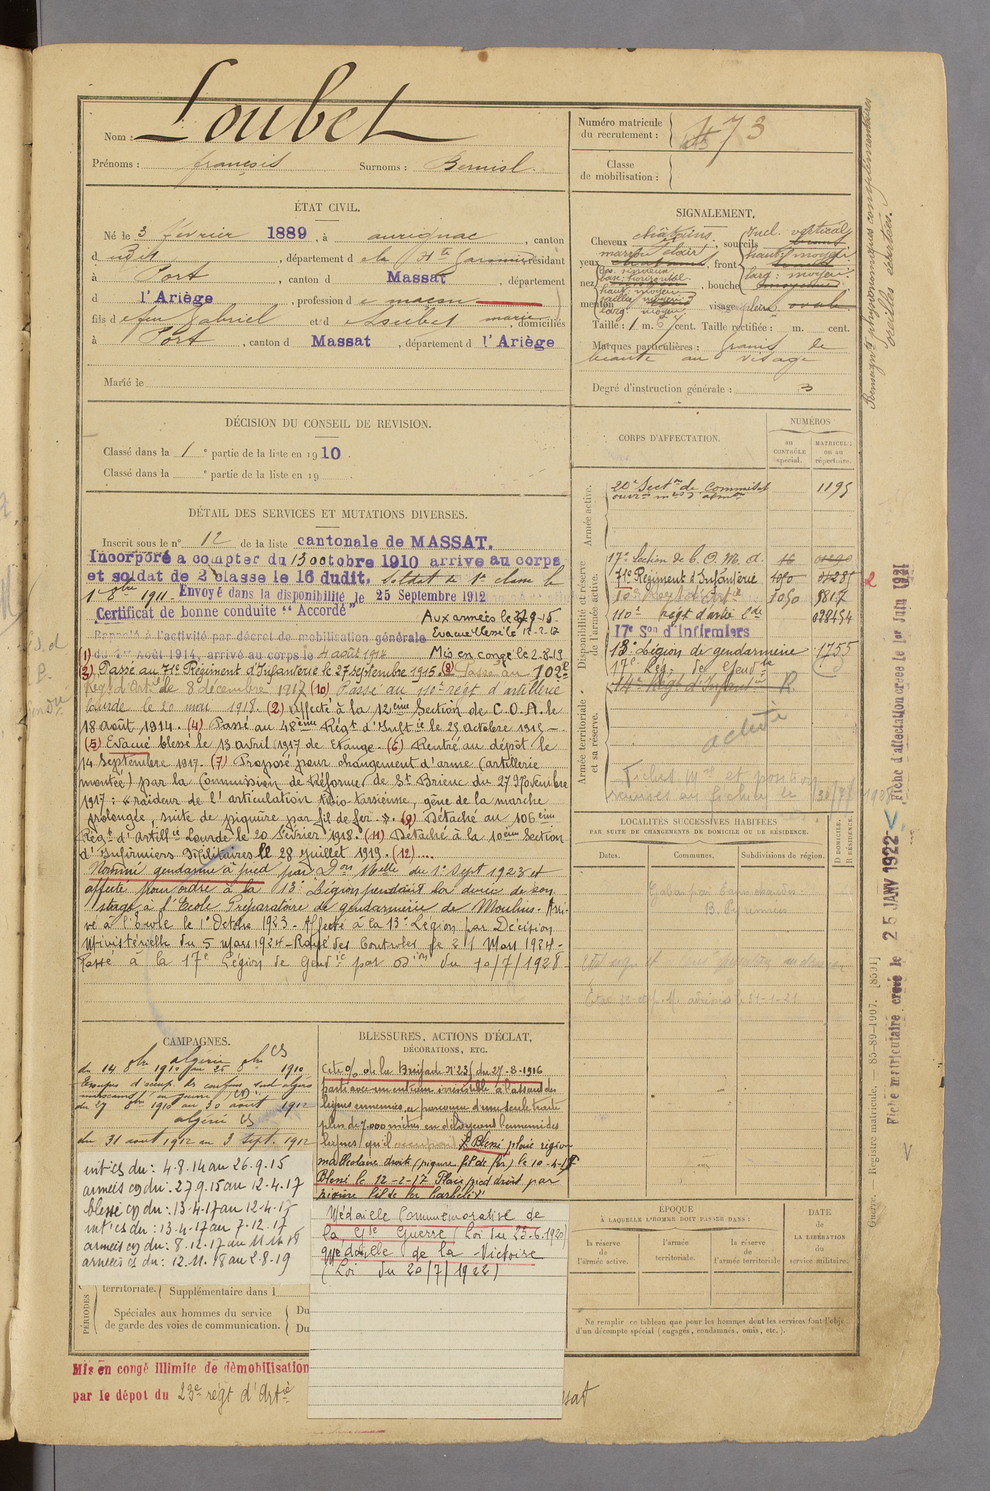 Nom : Loubet
Prénoms : françois Surnoms :
Numéro matricule du recrutement : 473
Classe de mobilisation :
ÉTAT CIVIL.
Né le 3 février 1889, à aurignac, canton
d udit, département d e la Hte Garonne résidant
à Port, canton d Massat, département
d l'Ariège, profession d e maçon
fils d e feu Gabriel et d e Loubet marie domiciliés
à Port, canton d Massat, département d l'Ariège
Marié le
SIGNALEMENT.
Cheveux châtains, sourcils
yeux marron clair, front
nez, bouche
menton visage
Taille : 1 m. 6 cent. Taille rectifiée : m. cent.
Marques particulières : grains de
beauté au visage
Degré d'instruction générale : 3
Renseignts physionomiques complémentaires
oreilles écartées.
DÉCISION DU CONSEIL DE REVISION.
Classé dans la 1 e partie de la liste en 1910.
Classé dans la e partie de la liste en 19
DÉTAIL DES SERVICES ET MUTATIONS DIVERSES.
Inscrit sous le n° 12 de la liste cantonale de MASSAT.
Incorporé à compter du 13 octobre 1910 arrivé au corps
et soldat de 2e classe le 16 dudit. Soldat de 1e classe le
1er 8bre 1911. Envoyé dans la disponibilité le 25 Septembre 1912
Certificat de bonne conduite "Accordé" Aux armées le 27-9-15.
Rappelé à l'activité par décret de mobilisation générale Evacué blessé le 12-2-17
(1) du 1er Août 1914, arrivé au corps le 4 août 1914 Mis en congé le 2.8.19
(3) Passé au 71e Régiment d'Infanterie le 27 septembre 1915. (8) Passé au 102e
Régt d'Artie le 8 décembre 1917 (10) Passé au 110e régt d'artillerie
lourde le 20 mai 1918. (2) Affecté à la 12ème Section de C.O.A. le
18 août 1914. (4) Passé au 48ème Régt d'Inftie le 25 octobre 1915 –
(5) Evacué blessé le 13 avril 1917 de Etange. (6) Rentré au dépôt le
14 Septembre 1917. (7) Proposé pour changement d'arme (artillerie
montée) par la Commission de Réforme de St Brieuc du 27 Novembre
1917 : "raideur de l'articulation tibio-tarsienne, gêne de la marche
prolongée, suite de piqure par fil de fer". (9) Détaché au 106ème
Régt d'Artillie Lourde le 20 février 1918. (11) Détaché à la 10ème Section
d'Infirmiers Militaires le 28 juillet 1919. (12)....
Nommé gendarme à pied par Don Melle du 1er Sept 1923 et
affecté pour ordre à la 13e Légion pendant la durée de son
stage à l'Ecole Préparatoire de gendarmerie de Moulins. Arri-
vé à l'Ecole le 1er Octobre 1923. Affecté à la 13e Légion par Décision
Ministérielle du 5 Mars 1924 – Rayé des Controles le 21 Mars 1924 –
Passé à la 17e Légion de Gendie par Don du 10/7/1928
CORPS D'AFFECTATION.
NUMÉROS
au CONTRÔLE spécial.
MATRICULE ou au répertoire.
Armée active.
20e Secton de Commis et 1195
ouvriers mres d'admon
Disponibilité et réserve de l'armée active.
17e Section de C.O.M.A.
71e Régiment d'Infanterie
110e régt d'artie Lde 028454
17e Son d'infirmiers
13e Légion de gendarmerie 1755
17e Lég. de Gendie
Armée territoriale et sa réserve.
R.
activité
LOCALITÉS SUCCESSIVES HABITÉES
PAR SUITE DE CHANGEMENTS DE DOMICILE OU DE RÉSIDENCE.
Dates. Communes. Subdivisions de région. D DOMICILE. R RÉSIDENCE.
Fiche d'affectation créée le 1er Juin 1921
Fiche matriculaire, créée le 25 JANV 1922
Guerre. Registre matricule. — 85-89-1907. [8591]
CAMPAGNES.
algérie
du 14 8bre 1910 au 25 8bre 1910
du 27 8bre 1910 au 30 août 1912
algérie
du 31 août 1912 au 3 Sept. 1912
int cs du : 4.8.14 au 26.9.15
armées cg du : 27.9.15 au 12.4.17
blessé cg du : 13.4.17 au 12.4.17
int cs du : 13.4.17 au 7.12.17
armées cg du : 8.12.17 au 11.11.18
armées cs du : 12.11.18 au 2.8.19
BLESSURES, ACTIONS D'ÉCLAT,
DÉCORATIONS, ETC.
Cité o/o de la Brigade n° 23 du 27-8-1916
parti avec un entrain irrésistible à l'assaut des
lignes ennemies, a parcouru d'une seule traite
plus de
lignes qu'il occupait. Blessé plaie région
malléolaire droite (piqure fil de fer) le 10-4-17
Blessé le 12-2-17 Plaie pied droit par
piqure fil de fer barbelé
Médaille Commémorative de
la Gde Guerre (Loi du 23.6.1920)
Médaille de la Victoire
(Loi du 20/7/1922)
PÉRIODES
territoriale. Supplémentaire dans l
Spéciales aux hommes du service
de garde des voies de communication. Du
Du
ÉPOQUE
À LAQUELLE L'HOMME DOIT PASSER DANS :
la réserve de l'armée active.
l'armée territoriale.
la réserve de l'armée territoriale
DATE de LA LIBÉRATION du service militaire.
Ne remplir ce tableau que pour les hommes dont les services font l'objet
d'un décompte spécial (engagés, condamnés, omis, etc.).
Mis en congé illimité de démobilisation
par le dépôt du 23e régt d'Artie